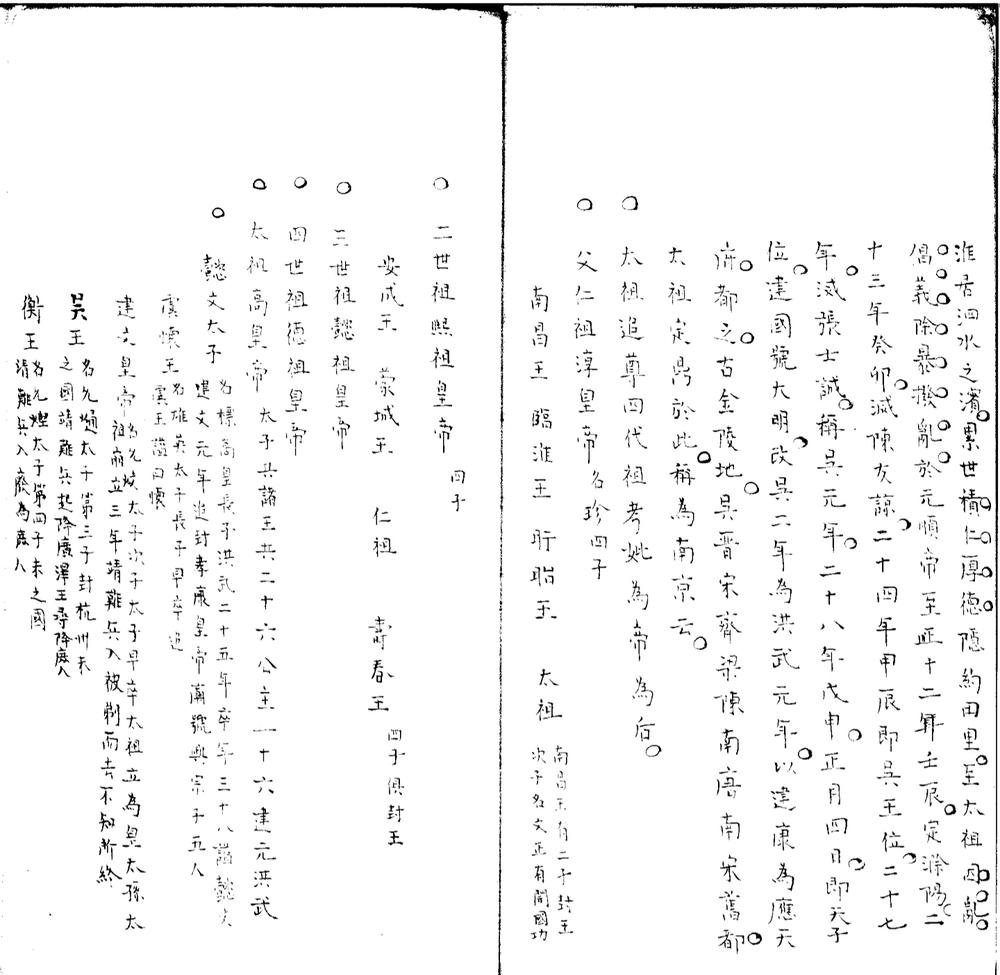 淮居泗水之濱累世積仁厚德隱約田里至太祖因亂
倡義除暴撥亂於元順帝至正十二年壬辰定滁陽二
十三年癸卯滅陳友諒二十四年甲辰即吳王位二十七
年滅張士誠稱吳元年二十八年戊申正月四日即天子
位建國號大明改吳二年為洪武元年以建康為應天
府都之古金陵地吳晉宋齊梁陳南唐南宋舊都
太祖定鼎於此稱為南京云
太祖追尊四代祖考妣為帝為后
父仁祖淳皇帝 名珍四子
南昌王 臨淮王 盱眙王 太祖 南昌王有二子封王
次子名文正有開國功
二世祖熙祖皇帝 四子
安成王 蒙城王 仁祖 壽春王 四子俱封王
三世祖懿祖皇帝
四世祖德祖皇帝
太祖高皇帝 太子共諸王共二十六公主一十六建元洪武
懿文太子 名標高皇長子洪武二十五年卒年三十八諡懿文
建文元年追封孝康皇帝廟號興宗子五人
虞懷王 名雄英太子長子早卒追
虞王諡曰懷
建文皇帝 名允炆太子次子太子早卒太祖立為皇太孫太
祖崩立三年靖難兵入被剃而去不知所終
吳王 名允熥太子第三子封杭州未
之國靖難兵起降廣澤王尋降庶人
衡王 名允熞太子第四子未之國
靖難兵入廢為庶人